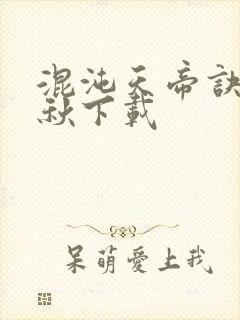 混沌天帝訣
秋下載
呆萌愛上我